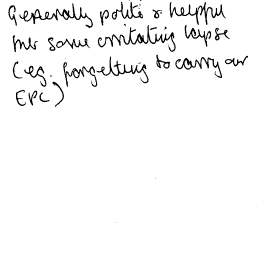 Generally polite & helpful
but some irritating lapse
(eg. forgetting to carry our
EPC)